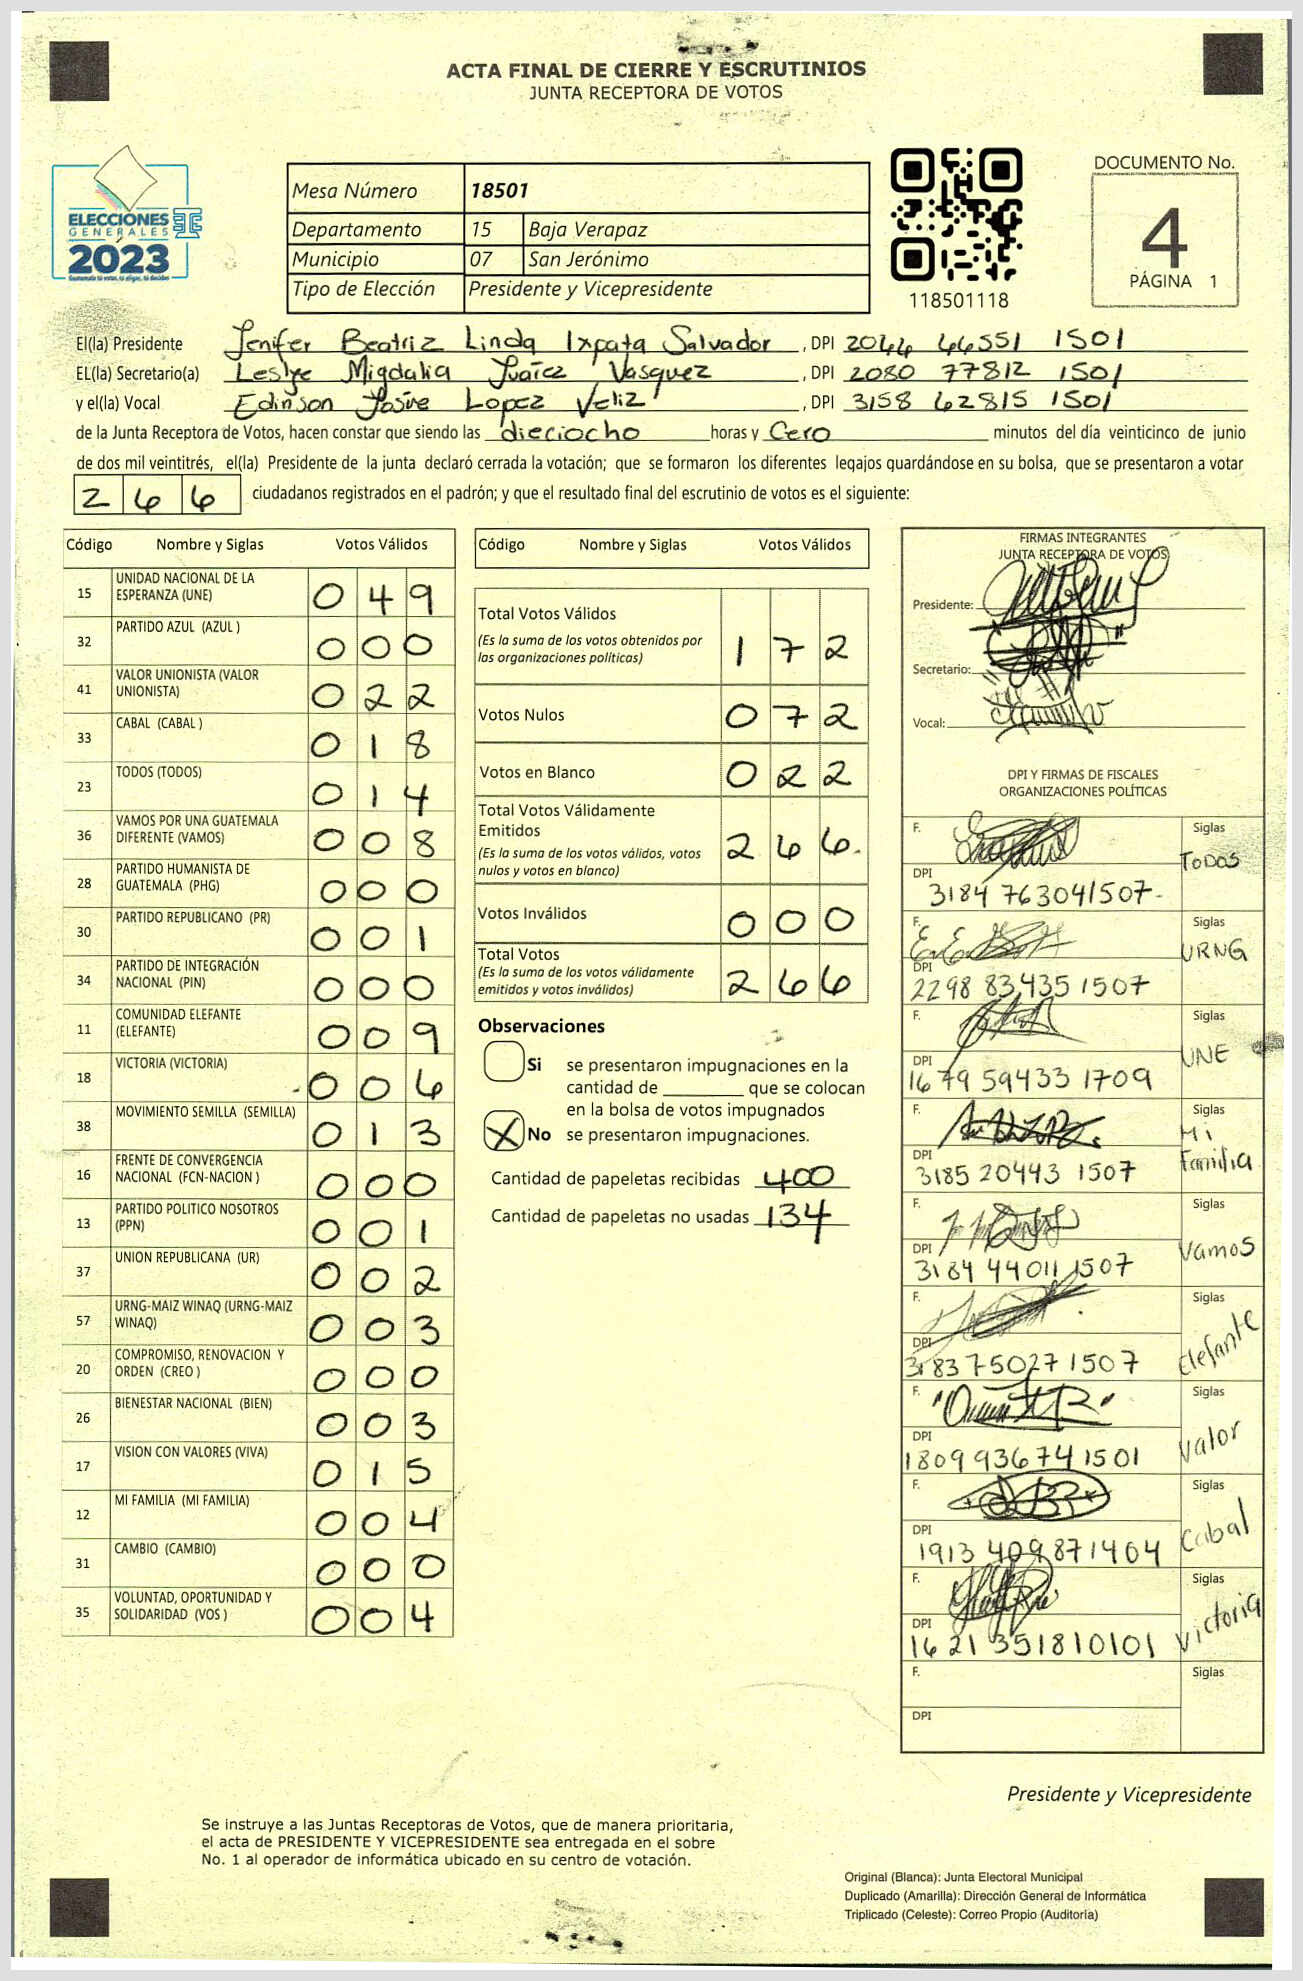 ACTA FINAL DE CIERRE Y ESCRUTINIOS
JUNTA RECEPTORA DE VOTOS
ELECCIONES
GENERALES
2023
Mesa Número 18501
Departamento 15 Baja Verapaz
Municipio 07 San Jerónimo
Tipo de Elección Presidente y Vicepresidente
118501118
DOCUMENTO No.
4
PÁGINA 1
El(la) Presidente Jenifer Beatriz Linda Ixpata Salvador , DPI 2044 44551 1501
EL(la) Secretario(a) Leslye Migdalia Juárez Vasquez , DPI 2080 77812 1501
y el(la) Vocal Edinson Josüe Lopez Veliz , DPI 3158 62815 1501
de la Junta Receptora de Votos, hacen constar que siendo las dieciocho horas y Cero minutos del día veinticinco de junio
de dos mil veintitrés, el(la) Presidente de la junta declaró cerrada la votación; que se formaron los diferentes legajos guardándose en su bolsa, que se presentaron a votar
266 ciudadanos registrados en el padrón; y que el resultado final del escrutinio de votos es el siguiente:
Código Nombre y Siglas Votos Válidos
15 UNIDAD NACIONAL DE LA ESPERANZA (UNE) 049
32 PARTIDO AZUL (AZUL ) 000
41 VALOR UNIONISTA (VALOR UNIONISTA) 022
33 CABAL (CABAL ) 018
23 TODOS (TODOS) 014
36 VAMOS POR UNA GUATEMALA DIFERENTE (VAMOS) 008
28 PARTIDO HUMANISTA DE GUATEMALA (PHG) 000
30 PARTIDO REPUBLICANO (PR) 001
34 PARTIDO DE INTEGRACIÓN NACIONAL (PIN) 000
11 COMUNIDAD ELEFANTE (ELEFANTE) 009
18 VICTORIA (VICTORIA) 006
38 MOVIMIENTO SEMILLA (SEMILLA) 013
16 FRENTE DE CONVERGENCIA NACIONAL (FCN-NACION ) 000
13 PARTIDO POLITICO NOSOTROS (PPN) 001
37 UNION REPUBLICANA (UR) 002
57 URNG-MAIZ WINAQ (URNG-MAIZ WINAQ) 003
20 COMPROMISO, RENOVACION Y ORDEN (CREO ) 000
26 BIENESTAR NACIONAL (BIEN) 003
17 VISION CON VALORES (VIVA) 015
12 MI FAMILIA (MI FAMILIA) 004
31 CAMBIO (CAMBIO) 000
35 VOLUNTAD, OPORTUNIDAD Y SOLIDARIDAD (VOS ) 004
Código Nombre y Siglas Votos Válidos
Total Votos Válidos 172
(Es la suma de los votos obtenidos por
las organizaciones políticas)
Votos Nulos 072
Votos en Blanco 022
Total Votos Válidamente
Emitidos 266
(Es la suma de los votos válidos, votos
nulos y votos en blanco)
Votos Inválidos 000
Total Votos 266
(Es la suma de los votos válidamente
emitidos y votos inválidos)
Observaciones
Si se presentaron impugnaciones en la
cantidad de ________ que se colocan
en la bolsa de votos impugnados
X No se presentaron impugnaciones.
Cantidad de papeletas recibidas 400
Cantidad de papeletas no usadas 134
FIRMAS INTEGRANTES
JUNTA RECEPTORA DE VOTOS
Presidente:
Secretario:
Vocal:
DPI Y FIRMAS DE FISCALES
ORGANIZACIONES POLÍTICAS
F. Siglas
TODOS
DPI
3184 763041507
F. Siglas
URNG
DPI
2298 83435 1507
F. Siglas
UNE
DPI
1679 59433 1709
F. Siglas
Mi
Familia
DPI
3185 20443 1507
F. Siglas
Vamos
DPI
3184 44011 1507
F. Siglas
Elefante
DPI
3183 75027 1507
F. Siglas
Valor
DPI
1809 93674 1501
F. Siglas
Cabal
DPI
1913 409871404
F. Siglas
Victoria
DPI
1621 351810101
F. Siglas
DPI
Presidente y Vicepresidente
Se instruye a las Juntas Receptoras de Votos, que de manera prioritaria,
el acta de PRESIDENTE Y VICEPRESIDENTE sea entregada en el sobre
No. 1 al operador de informática ubicado en su centro de votación.
Original (Blanca): Junta Electoral Municipal
Duplicado (Amarilla): Dirección General de Informática
Triplicado (Celeste): Correo Propio (Auditoría)